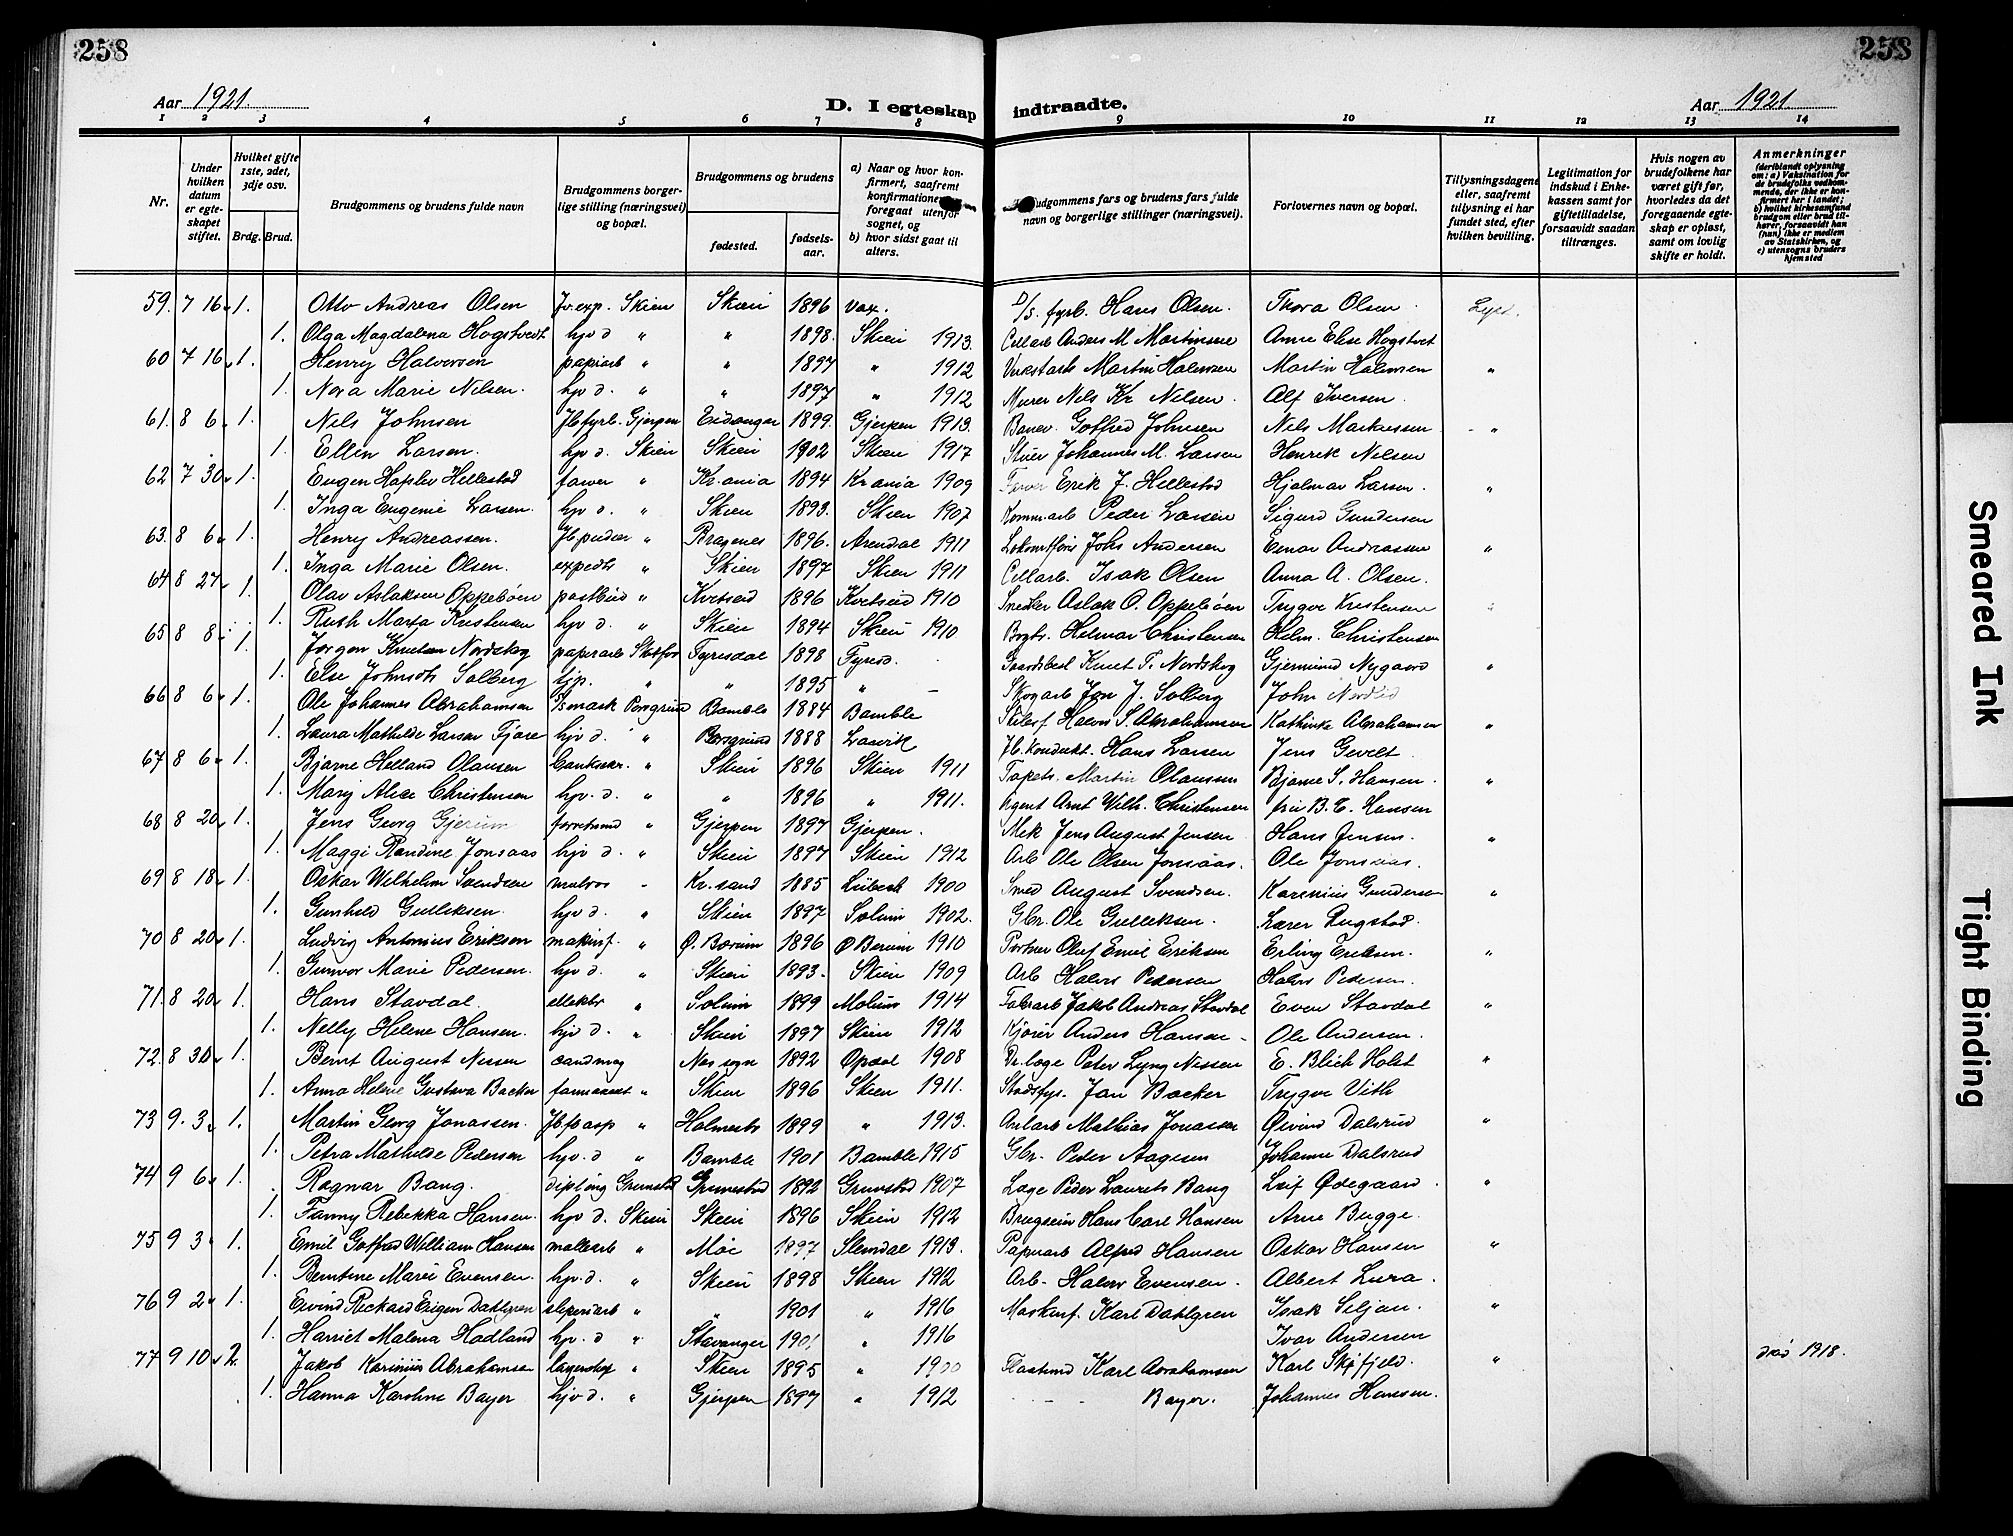 258
258
Aar 1921.
D. I egteskap indtraadte.
Aar 1921.
1 2 3 4 5 6 7 8 9 10 11 12 13 14
Nr.
Under hvilken datum er egteskapet stiftet.
Hvilket gifte 1ste, 2det, 3dje osv.
Brdg. Brud.
Brudgommens og brudens fulde navn
Brudgommens borgerlige stilling (næringsvei) og bopæl.
Brudgommens og brudens
fødested.
fødselsaar.
a) Naar og hvor konfirmert, saafremt konfirmationen foregaat utenfor sognet, og
b) hvor sidst gaat til alters.
Brudgommens fars og brudens fars fulde navn og borgerlige stillinger (næringsvei).
Forlovernes navn og bopæl.
Tillysningsdagene eller, saafremt tillysning ei har fundet sted, efter hvilken bevilling.
Legitimation for indskud i Enkekassen samt for giftetilladelse, forsaavidt saadan tiltrænges.
Hvis nogen av brudefolkene har været gift før, hvorledes da det foregaaende egteskap er opløst, samt om lovlig skifte er holdt.
Anmerkninger (deriblandt oplysning om: a) Vaksination for de brudefolks vedkommende, der ikke er konfirmert her i landet; b) hvilket kirkesamfund brudgom eller brud tilhører, forsaavidt han (hun) ikke er medlem av Statskirken, og c) utensogns bruders hjemsted
59. 7 16 1. Otto Andreas Olsen Skien Skien 1896 vax. D/S. fyrb. Hans Olsen. Thora Olsen Lyst.
1. Olga Magdalena Hogstvedt hjv d " " 1898. Skien 1913. Cellarb Anders M Martinsen Anne Elise Hogstvet
60 7 16 1. Henry Halvorsen papirarb " " 1897 " 1912 Verkstarb Martin Halvorsen Martin Halvorsen "
1. Nora Marie Nilsen. hjv d. " " 1897 " 1912 Murer Nils Kr Nilsen. Alf Iversen.
61. 8 6 1. Nils Johnsen Jbfyrb. Gjerpen Eidanger 1899. Gjerpen 1913. Banev. Gotfred Johnsen Nils Markussen "
1. Ellen Larsen. hjv d. Skien Skien 1902 Skien 1917 Johannes M. Larsen Henrik Nilsen
62 7 30 1. Eugen Hapler Hellestad farver " Kr.ania 1894 Kr ania 1909 Farver Erik J. Hellestad Hjalmar Larsen. "
1. Inga Eugenie Larsen. hjv d. " Skien 1893. Skien 1907 Kommarb Peder Larsen Sigurd Gundersen
63. 8 6 1. Henry Andreassen. " Bragenes 1896. Arendal 1911 Johs Andersen Einar Andreassen "
1. Inga Marie Olsen. expedtr " Skien 1897 Skien 1911 Cellarb. Isak Olsen Anna A. Olsen.
64 8 27 1. Olav Aslaksen Oppebøen postbud " Kvitseid 1896 Kvitseid 1910 Snedker Aslak O. Oppebøen Trygve Kristensen "
1. Ruth Marta Kristensen hjv d. " Skien 1894 Skien 1910 Helmar Christensen Helm. Christensen
65 8 8 1. Jørgen Knutsen Nordskog papirarb Skotfos Fyresdal 1898 Fyresd. Gaardsbest Knut T. Nordskog Gjermund Nygaard "
1. Else Johnsdt Solberg tjp. " " 1895 " – Skogarb Jon J. Solberg John
66 8 6 1. Ole Johannes Abrahamsen Porsgrund Bamble 1884 Bamble Halvor S. Abrahamsen Kathinka Abrahamsen "
1. Laura Mathilde Larsen Fjære hjv d. " Porsgrund 1888 Laurvik Jb. kondukt. Hans Larsen Jens Gevelt.
67 8 6 1. Bjarne Helland Olausen " Skien 1896 Skien 1911 Tapets. Martin Olaussen Bjarne S. Hansen. "
1. Mary Alice Christensen hjv. d. " " 1896 " 1911. Agent Arnt Wilh. Christensen fru B. C. Hansen
68 8 20 1. Jens Georg Gjerum " Gjerpen 1897 Gjerpen. Mek Jens August Jensen Hans Jensen. "
1. Maggi Randine Jonsaas hjv d. " Skien 1897 Skien 1912 Arb Ole Olsen Jonsaas. Ole Jonsaas.
69 8 18 1. Oskar Wilhelm Svendsen matros " Kr.sand 1885 Lübeck 1900 Smed August Svendsen. Karenius Gundersen "
1. Gunhild Gulliksen. hjv d. " Skien 1897 Solum 1902. Gbr. Ole Gulliksen. Lærer Rugstad.
70 8 20 1. Ludvig Antonius Eriksen maskinf. " Ø. Bærum 1896 Ø Bærum 1910 Portner Oluf Emil Eriksen Erling Eriksen. "
1. Gunvor Marie Pedersen. hjv d. " Skien 1893. Skien 1909 Arb Halvor Pedersen Halvor Pedersen.
71. 8 20 1. Hans Stavdal. elektr " Solum 1899 Molum 1914 Fabrarb Jakob Andreas Stavdal Even Stavdal "
1. Nelly Helene Hansen. hjv d. " Skien 1897 Skien 1912 Kjører Anders Hansen – Ole Andersen.
72. 8 30 1. Bernt August Nissen candmag " Nes sogn 1892 Opdal 1908 Dr.læge Peter Lyng Nissen E. Blich Holst "
1. Anna Helene Gustava Backer farmaceut " Skien 1896 Skien 1911. Stadsfys. Jan Backer Trygve Vith
73 9. 3 1. Martin Georg Jonassen. Jbfb asp " Holmestr 1899 " 1913. Anlarb Mathias Jonassen Øivind Dalsrud "
1. Petra Mathilde Pedersen hjv. d " Bamble 1901 Bamble 1915 Gbr. Peder Aagesen Johanne Dalsrud
74 9 6 1. Ragnar Bang. dipl.ing Grimstad Grimestad 1892 Grimstad 1907 Læge Peder Laurets Bang Leif Ødegaard. "
1. Fanny Rebekka Hansen. hjv d. Skien Skien 1896 Skien 1912 Brugseier Hans Carl Hansen Arne Bugge.
75 9 3 1. Emil Gotfred William Hansen " Moe 1897 Slemdal 1913. Papirarb Alfred Hansen Oskar Hansen "
1. Berntine Marie Evensen. hjv. d. " Skien 1898 Skien 1912 Arb. Halvor Evensen. Albert Lura.
76 9 2 1. Eivind Rickard Eugen Dahlgren sliperiarb " " 1901 " 1916 Maskinf. Karl Dahlgren Isak Siljan. "
1. Harriet Malena Hadland hjv. d " Stavanger 1901 " 1916 Ivar Andersen
77 9 10 2. Jakob Karinius Abrahamsen " Skien 1895 " 1900 Karl Abrahamsen Karl Skifjeld. " død 1918.
1. Hanna Karoline Bayer hjv d. " Gjerpen 1897 " 1912 – – Bayer. Johannes Hansen.
Smeared Ink
Tight Binding